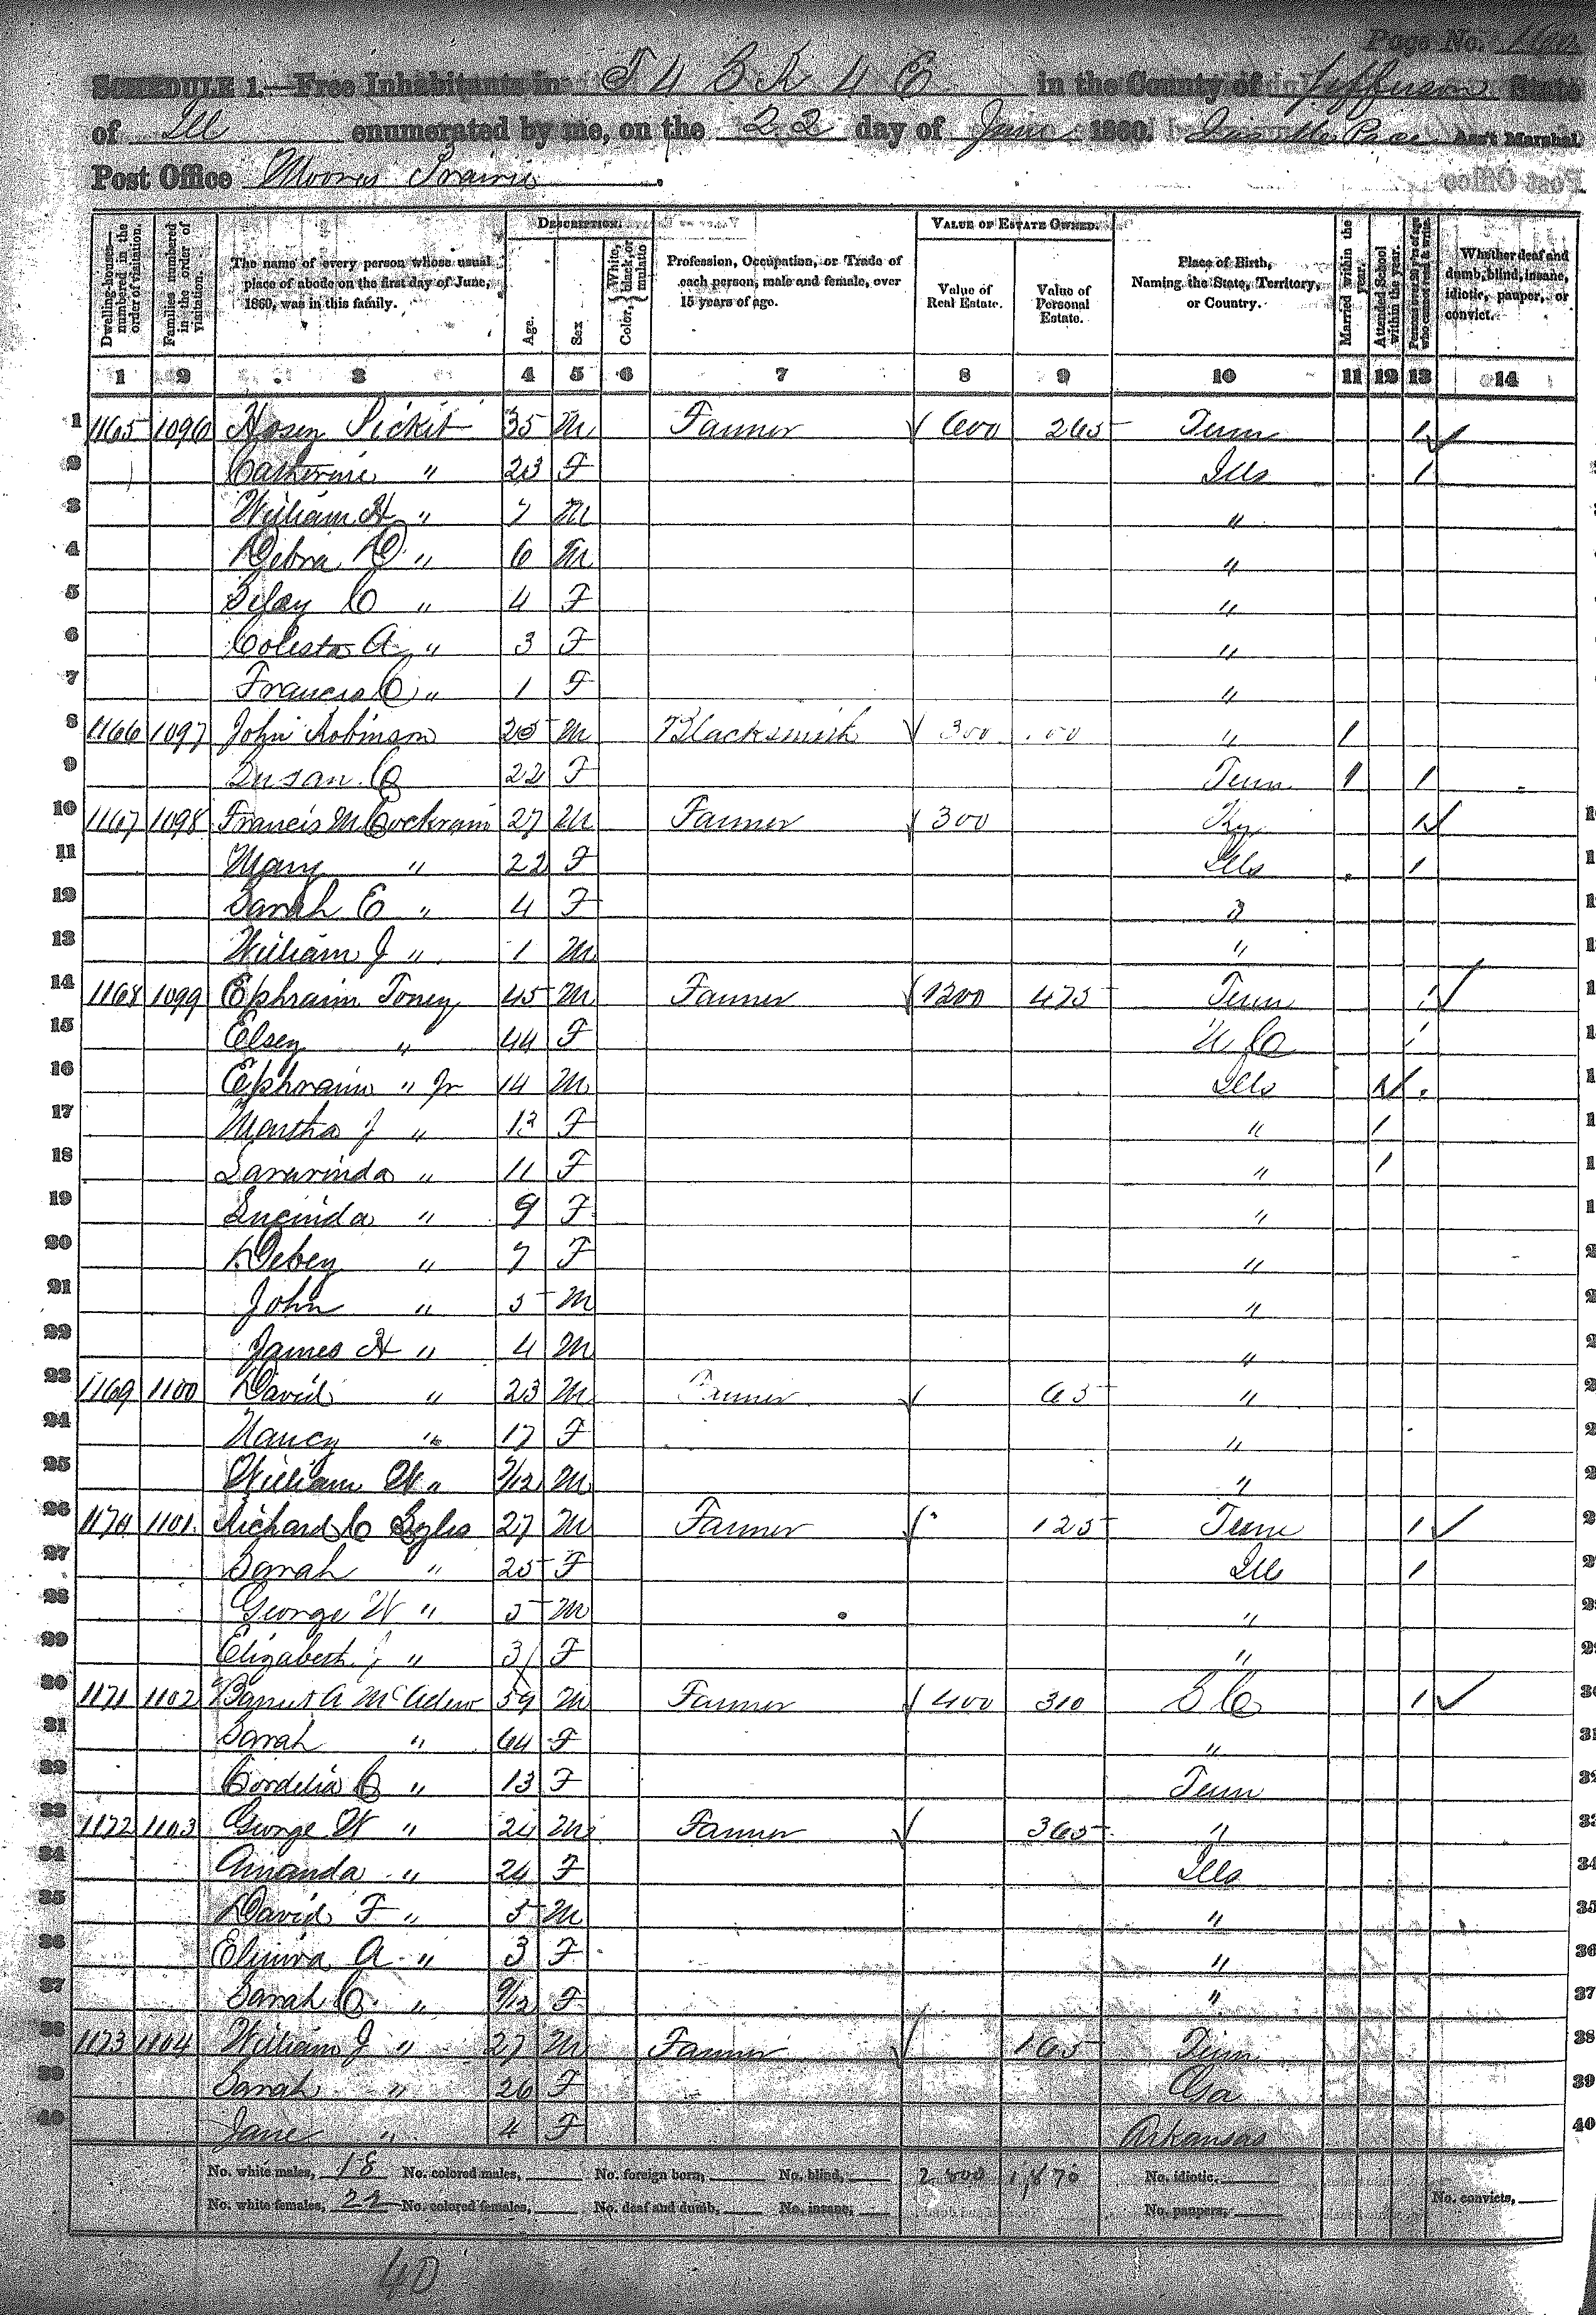 Page No. 160
SCHEDULE 1.—Free Inhabitants in T 4 S R 4 E in the County of Jefferson State
of Ill enumerated by me, on the 22 day of June 1860. Ass't Marshal.
Post Office Moores Prairie
Dwelling-houses—numbered in the order of visitation. Families numbered in the order of visitation. The name of every person whose usual place of abode on the first day of June, 1860, was in this family. DESCRIPTION. Age. Sex Color, White, black, or mulatto Profession, Occupation, or Trade of each person, male and female, over 15 years of age. VALUE OF ESTATE OWNED. Value of Real Estate. Value of Personal Estate. Place of Birth, Naming the State, Territory, or Country. Married within the year. Attended School within the year. Persons over 20 y'rs of age who cannot read & write. Whether deaf and dumb, blind, insane, idiotic, pauper, or convict.
1 2 3 4 5 6 7 8 9 10 11 12 13 14
1 1165 1096 Hosey Pickit 35 M Farmer 600 265 Tenn 1
2 Catherine " 23 F Ills 1
3 William H " 7 M "
4 Debra D " 6 M "
5 C " 4 F "
6 Colesta A " 3 F "
7 Francis C " 1 F "
8 1166 1097 John Robinson 25 M Blacksmith 300 " 1
9 Susan C 22 F Tenn 1 1
10 1167 1098 Francis M Cockram 27 M Farmer 300 Ky 1
11 Mary " 22 F Ills 1
12 Sarah E " 4 F "
13 William J " 1 M "
14 1168 1099 Ephraim Toney 45 M Farmer 1200 475 Tenn 1
15 Elsey " 44 F N Ca 1
16 Ephraim " Jr 14 M Ills 1
17 Martha J " 13 F " 1
18 " 11 F " 1
19 Lucinda " 9 F "
20 Debey " 7 F "
21 John " 5 M "
22 James H " 4 M "
23 1169 1100 David " 23 M Farmer 65 "
24 Nancy " 17 F "
25 William W " /12 M "
26 1170 1101 Richard C Lyles 27 M Farmer 125 Tenn 1
27 Sarah " 25 F Ill 1
28 George W " 5 M "
29 Elizabeth J " 3 F "
30 1171 1102 A McAdew 59 M Farmer 400 310 S C 1
31 Sarah " 64 F "
32 Cordelia C " 13 F Tenn
33 1172 1103 George W " 24 M Farmer 365 "
34 Amanda " 24 F Ills
35 David F " 5 M "
36 Elmira A " 3 F "
37 Sarah C " 9/12 F "
38 1173 1104 William J " 27 M Farmer 165 Tenn
39 Sarah " 26 F Ga
40 Jane " 4 F Arkansas
No. white males, 18 No. colored males, No. foreign born, No. blind, 2800 1,870 No. idiotic,
No. white females, 22 No. colored females, No. deaf and dumb, No. insane, No. paupers, No. convicts,
40